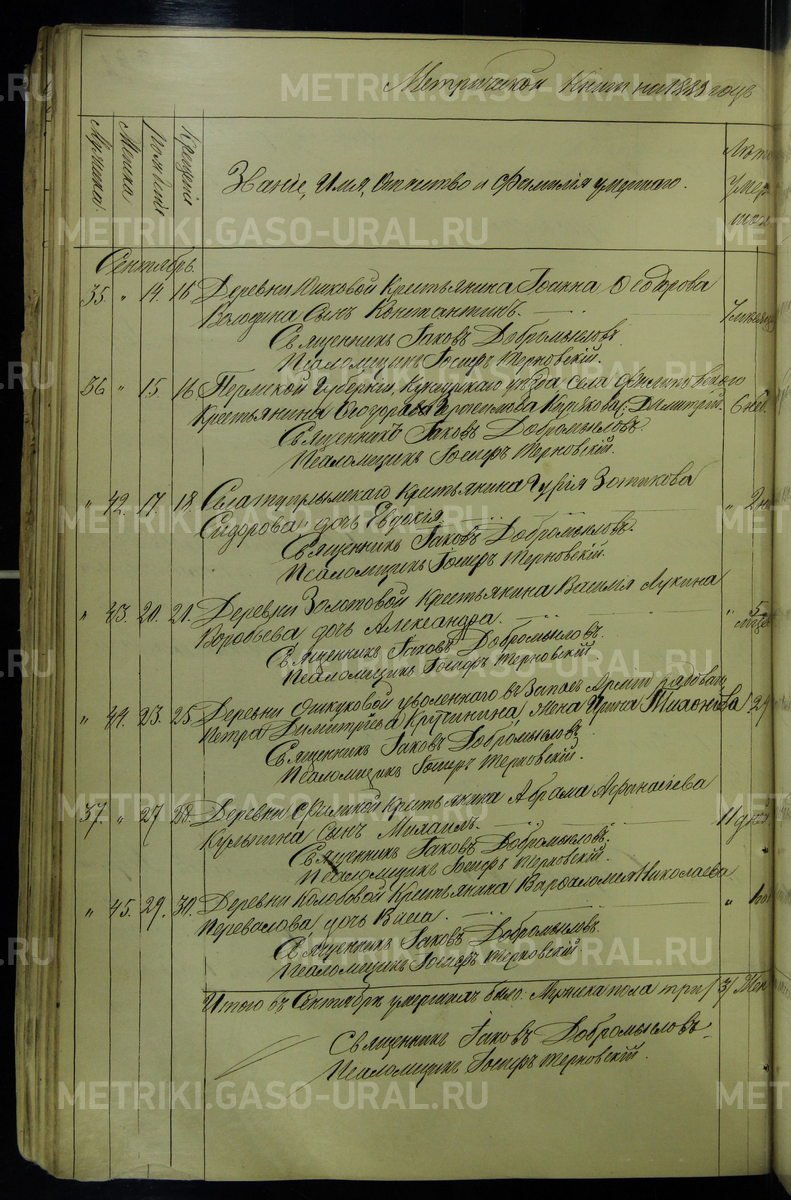 Метрической Книги на 1883 годъ
Мужска. Женска рожденiе Крещенiе
Званiе, Имя, Отчество и Фамилiя умершаго.
Лѣта умер
Сентябрь.
35 " 14. 16 Деревни Юшковой Крестьянина Iоанна Ѳеодорова
Володина Сынъ Константинъ.
Священникъ Iаковъ Добромысловъ.
Псаломщикъ Iосифъ Терновскiй.
36 " 15. 16 Пермской Губернiи, уѣзда села
Крестьянина Димитрiй. 6 нед.
Священникъ Iаковъ Добромысловъ.
Псаломщикъ Iосифъ Терновскiй.
" 42. 17. 18. Села Крестьянина Гурiя Зотикова
Сидорова дочь Евдокiя " 2
Священникъ Iаковъ Добромысловъ.
Псаломщикъ Iосифъ Терновскiй.
" 43. 20. 21. Деревни Золотовой Крестьянина Василiя Лукина
Воробьева дочь Александра. " 5
Священникъ Iаковъ Добромысловъ.
Псаломщикъ Iосифъ Терновскiй
" 44. 23. 25. Деревни уволеннаго въ Запасъ Армiи рядоваго
Петра Димитрiева Кручинина, жена Ирина Тихонова
Священникъ Iаковъ Добромысловъ
Псаломщикъ Iосифъ Терновскiй.
37. " 27 28. Деревни Крестьянина Абрама Аѳанасьева
Кульпина сынъ Михаилъ. 11
Священникъ Iаковъ Добромысловъ.
Псаломщикъ Iосифъ Терновскiй.
" 45. 29. 30. Деревни Колобовой Крестьянина Варѳаломея Николаева
Перевалова, дочь "
Священникъ Iаковъ Добромысловъ.
Псаломщикъ Iосифъ Терновскiй
Итого въ Сентябрѣ умершихъ было: Мужска пола три /3/ Жен
Священникъ Iаковъ Добромысловъ
Псаломщикъ Iосифъ Терновскiй.
METRIKI.GASO-URAL.RU